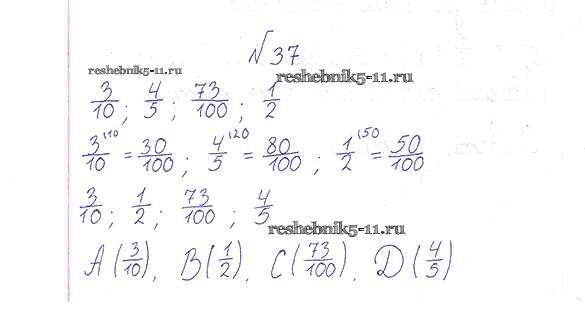 № 37
reshebnik5-11.ru
reshebnik5-11.ru
3/10; 4/5; 73/100; 1/2
3/10 (10 = 30/100; 4/5 (20 = 80/100; 1/2 (50 = 50/100
3/10; 1/2; 73/100; 4/5
reshebnik5-11.ru
A(3/10), B(1/2), C(73/100), D(4/5)